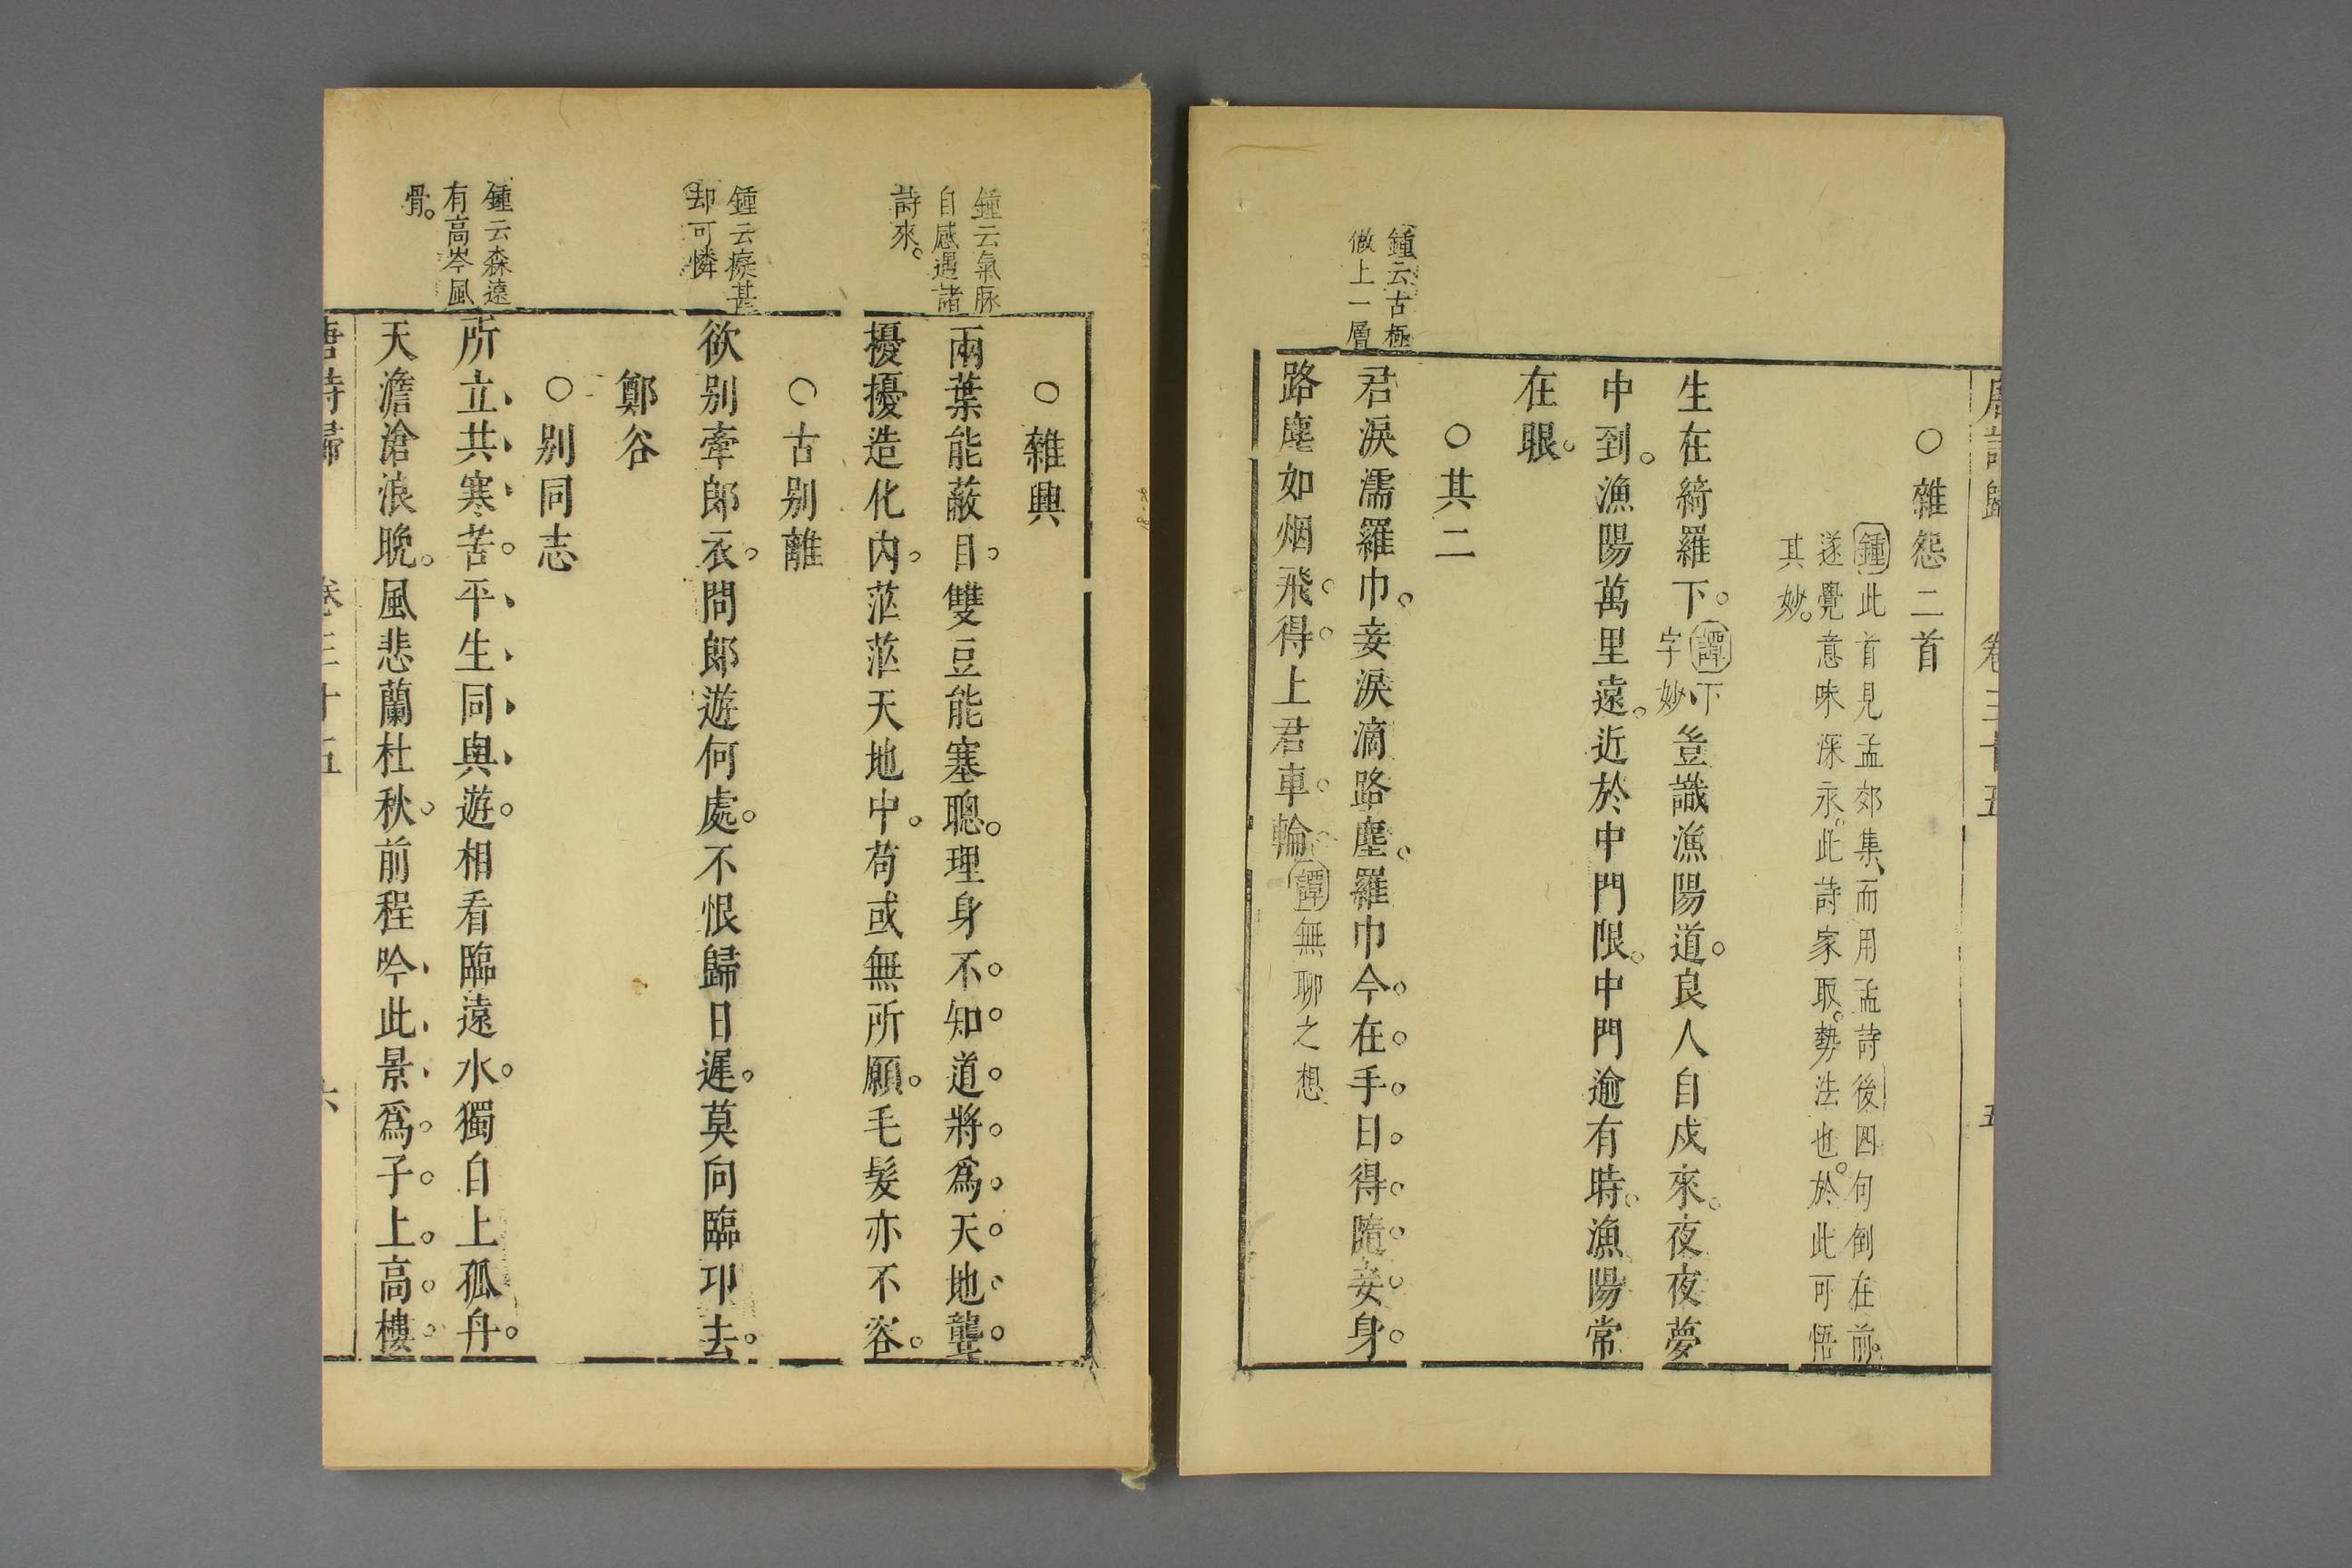 唐詩歸 卷三十五 五
○雜怨二首
鍾此首見孟郊集、而用孟詩後四句倒在前。
遂覺意味深永。此詩家取勢法也。於此可悟
其妙。
生在綺羅下。譚下字妙豈識漁陽道。良人自戍來。夜夜夢
中到。漁陽萬里遠。近於中門限。中門逾有時。漁陽常
在眼。
○其二
鍾云古極
做上一層
君淚濡羅巾。妾淚滴路塵。羅巾今在手。日得隨妾身。
路塵如烟飛。得上君車輪。譚無聊之想
○雜興
鍾云氣脉
自感遇諸
詩來。
兩葉能蔽目。雙豆能塞聰。理身不知道。將爲天地聾。
擾擾造化內。茫茫天地中。苟或無所願。毛髮亦不容。
○古别離
鍾云癡甚
却可憐
欲别牽郎衣。問郎遊何處。不恨歸日遲。莫向臨邛去。
鄭谷
○别同志
鍾云森遠
有高岑風
骨。
所立共寒苦。平生同與遊。相看臨遠水。獨自上孤舟。
天澹滄浪晚。風悲蘭杜秋。前程吟此景。爲子上高樓
唐詩歸 卷三十五 六